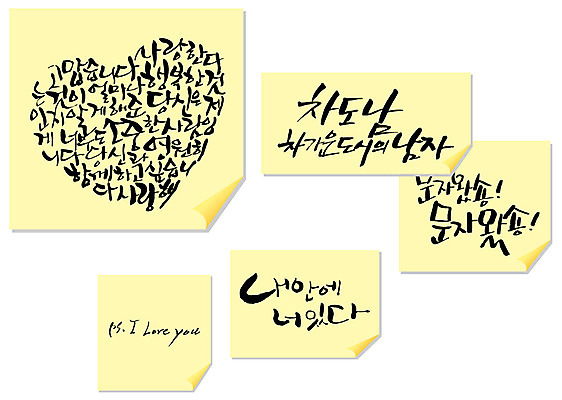 고맙습니다. 사랑한다
는것이 얼마나 행복한것
인지 알게해준 당신은 제
게 너무도 소중한 사람입
니다 당신과 영원히
함께하고 싶습니
다 사랑해
차도남
차가운도시의 남자
문자왔숑!
문자왔숑!
P.S. I Love you
내안에
너있다